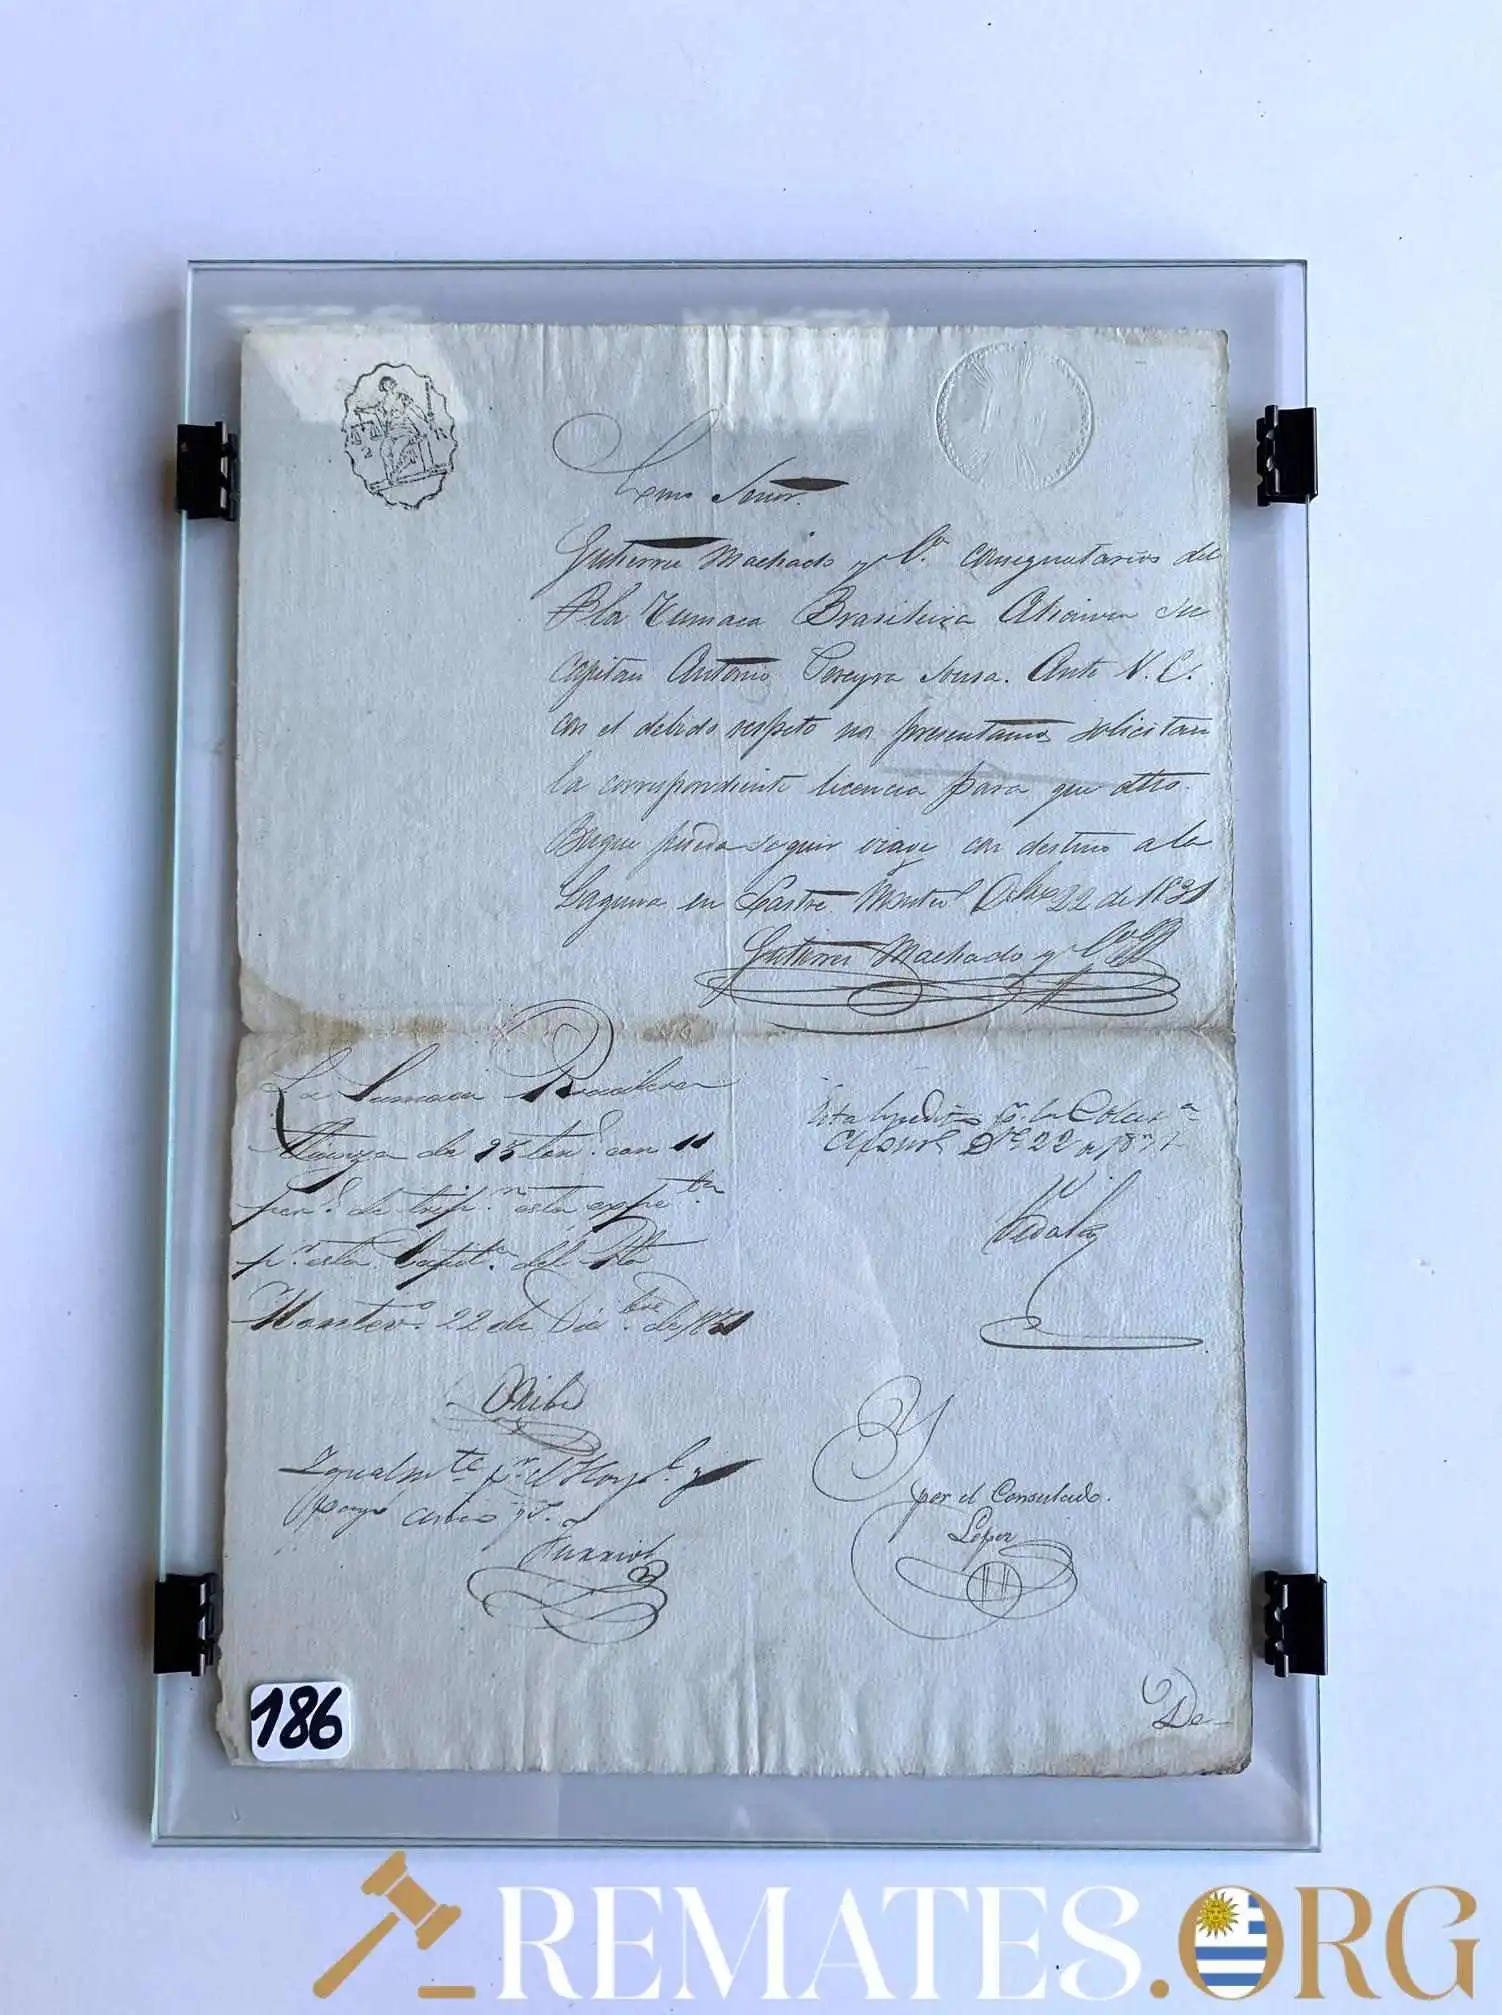 Exmo Señor.
Gutierrez Machado y Ca. consignatarios del
Bla Zumaca Brasileira su
Capitan Antonio Pereyra Sousa. Ante V. E.
con el debido respeto nos presentamos solicitan
la correspondiente licencia para que dtho.
Buque pueda seguir viage con destino a la
Laguna en Lastre. 22 de 1831
Gutierrez Machado y Ca
La Sumaca Brasilera
de 93 ton.s con 11
per.s de trip.n esta
p.r esta Capit.a del Pto
Montev.o 22 de Dic.bre de 1831
Oribe
Igualm.te p.r el Hosp.l y
pagó
Furriol
p.r la Colect.a
22
Vidal
Y
por el Consulado.
Lopez
De
2
186
REMATES.ORG